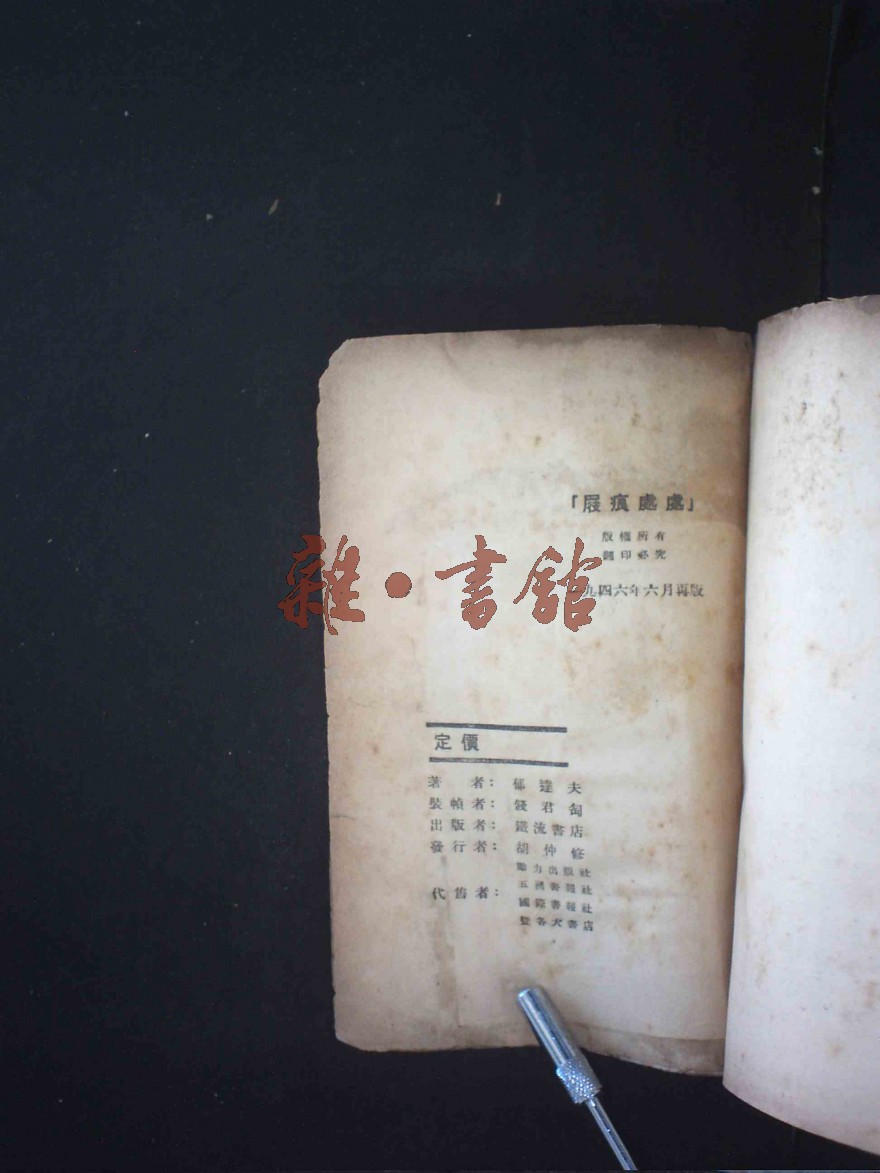 「屐痕處處」
版權所有
翻印必究
一九四六年六月再版
雜·書館
定價
著者：郁達夫
裝幀者：錢君匋
出版者：鐵流書店
發行者：胡仲修
代售者：
動力出版社
五洲書報社
國際書報社
暨各大書店